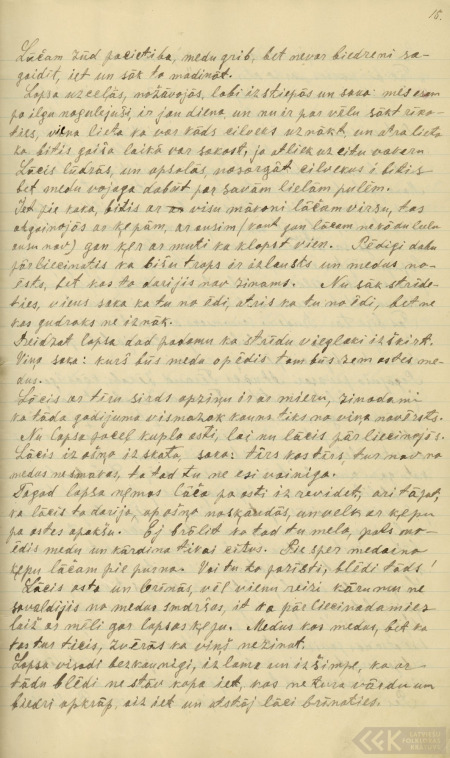 15.
Lāčam zūd pacietība, medu grib, bet nevar biedreni sa-
gaidit, iet un sāk to modināt.
Lapsa uzcelās, nožāvojās, labi izstiepās un saka: mēs esam
pa ilgu nogulējuši, ir jau diena, un nu ir par vēlu sākt rīko-
ties, viena lieta ka var kāds cilveks uznākt, un otra lieta
ka bitis gaišā laikā var sakost, jo atliek uz citu vakaru
Lācis lūdzās, un apsolās, nosargāt cilvekus i bitis
bet medu vajaga dabūt par savām lielām pulēm.
Iet pie koka, bitis ar visu mākoni lāčam virsu, tas
atgainojās ar ķepām, ar ausim (kaut gan lāčam nekādu lielu
ausu nav) gan ķer ar muti ka klapst vien. Pēdigi dabu
pārliecinatis ka bišu traps ir izlausts un medus no-
ēsts, bet kas to darijis nav zinams. Nu sāk strīdo-
ties, viens saka ka tu no ēdi, otris ka tu no ēdi, bet ne
kas gudraks ne iznāk.
Beidzot lapsa dod padomu ka strīdu vieglaki izšķirt.
Viņa saka: kurš būs medu apēdis tam būs zem astes me-
dus.
Lācis ar tīru sirds apziņu ir ar mieru, zinodami
ka tāda gadijuma vismazak kauns ties no viņa novērsts.
Nu lapsa pacel kuplo asti, lai nu lācis pārliecinojās.
Lācis izošņo izskata, saka: tīrs kas tīrs, tur nav no
medus ne smakas, ta tad tu ne esi vainiga.
Tagad lapsa ņemas lāča pa asti izrevidet, ari tāpat,
ka lācis to darija, apošņo noskaudās, un velk ar ķepu
pa astes apakšu. Ej brālit ta tad tu melo, pats no-
ēdis medu un kārdina tikai citus. Pie sper medaino
ķepu lāčam pie purna. Vai tu ko pazisti, blēdi tāds!
Lācis osta un brīnās, vēl vienu reizi kārumu ne
savaldijis no medus smaržas, it ka pārliecinadamies
laiž ar mēli gar lapsas ķepu. Medus kas medus, bet ka
tas tur ticis, zvērās ka viņš ne zinot.
Lapsa virsdi bezkaunigi, izlamā un izšimpē, ka ar
tādu blēdi ne stāv kopa iet, kas ne tura vārdu un
biedri apkrāp, aiz iet un atstāj lāci brīnaties.
LATVIEŠU FOLKLORAS KRĀTUVE